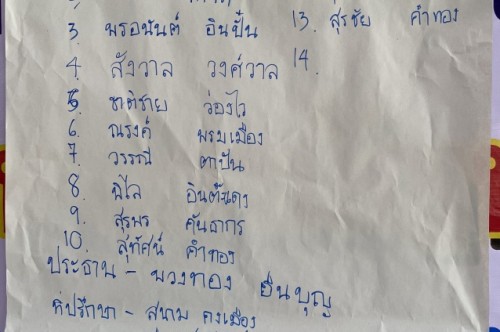 3 พรอนันต์ อินปั๋น
4 สังวาล วงศ์วาล
5. ชาติชาย ว่องไว
6. ณรงค์ พรมเมือง
7. วรรณี ตาปัน
8. พิไล อินต๊ะแดง
9. สุรพร คันธากร
10. สุทัศน์ คำทอง
13. สุรชัย คำทอง
14.
ประธาน - พวงทอง อื่นบุญ
ที่ปรึกษา - สนาม คงเมือง